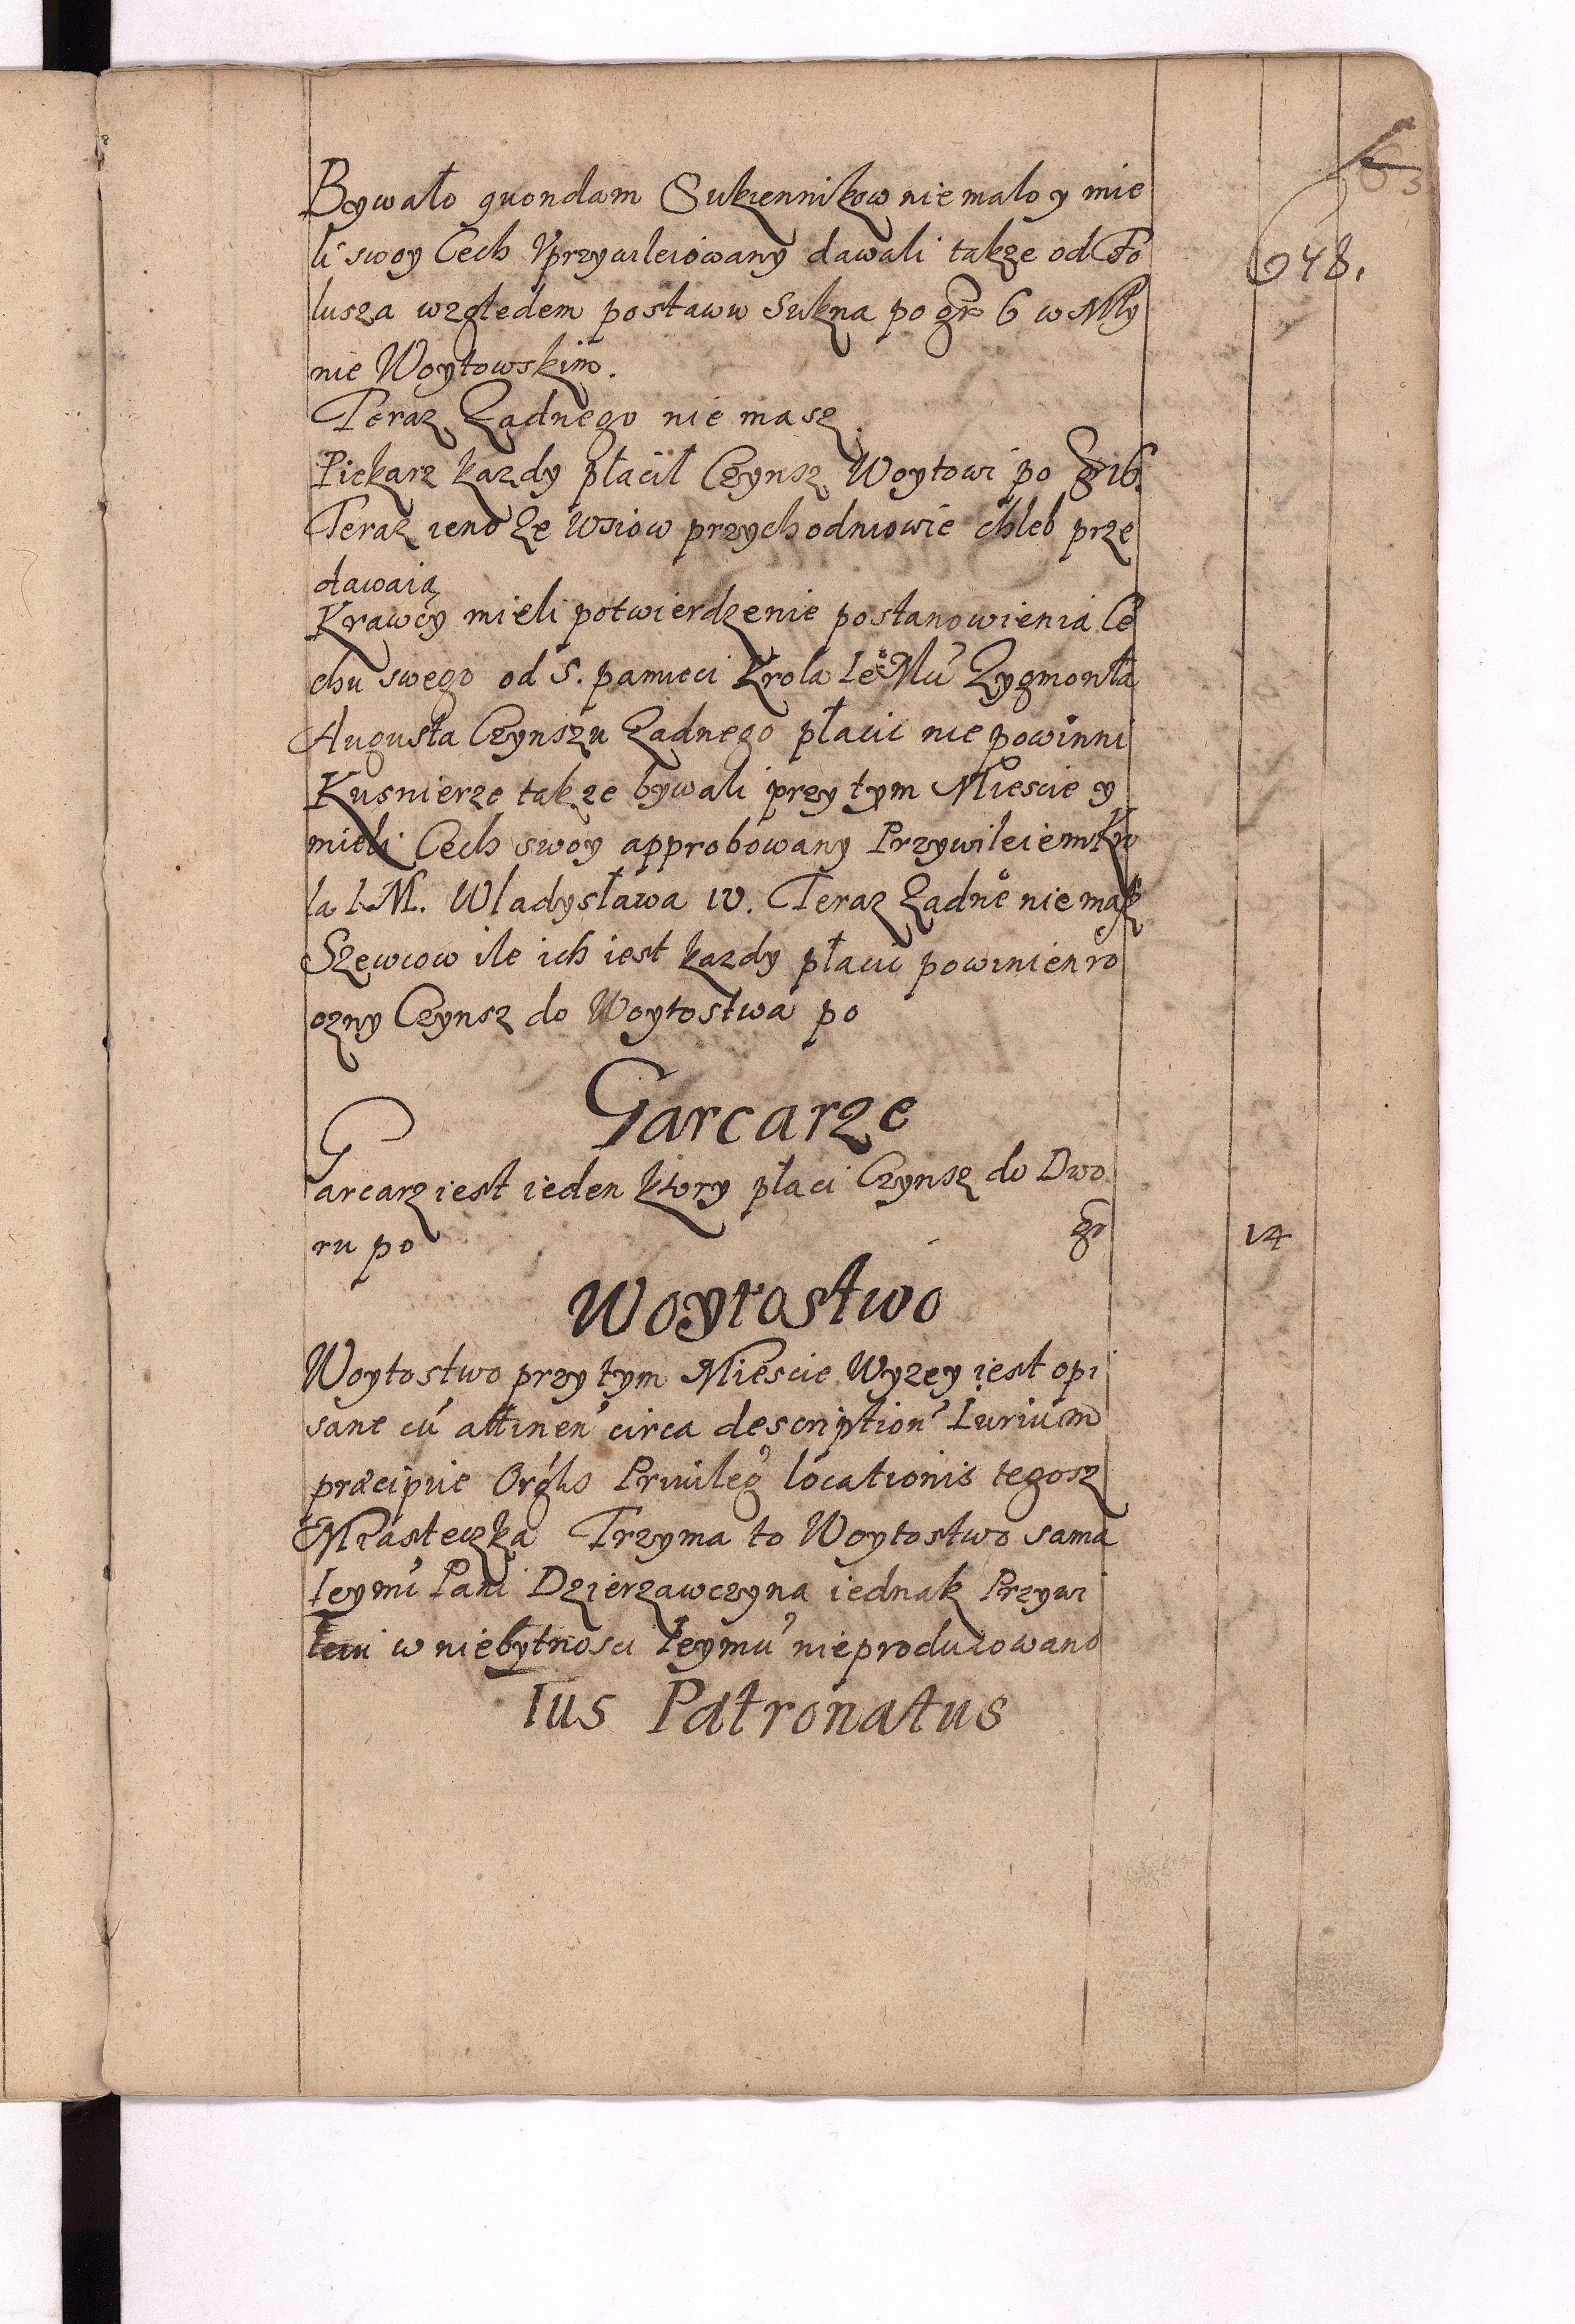 648.
Bywało quondam Sukiennikow nie mało y mie
li swoy Cech Vprzywileiowany dawali także od Fo
lusza wzgledem postawu Sukna po gr 6 w Mły
nie Woytowskim.
Teraz Zadnego nie masz.
Piekarz kazdy płacił Czynsz Woytowi po gr 16.
Teraz ieno Ze Wsiow przychodniowie chleb prze
dawaią
Krawcy mieli potwierdzenie postanowienia Ce
chu swego od S. pamieci Krola Ie Mci Zygmonta
Augusta Czynszu Zadnego płacic nie powinni
Kusnierze takze bywali przy tym Miescie y
mieli Cech swoy approbowany Przywileiem Kro
la I M. Wladysława IV. Teraz Zadne nie masz
Szewcow ile ich iest kazdy płacic powinien ro
czny Czynsz do Woytostwa po
Garcarze
Garcarz iest ieden ktory płaci Czynsz do Dwo
ru po gr 14
Woytostwo
Woytostwo przy tym Miescie Wyzey iest opi
sane cu attinen circa description Iurium
præcipue Orglis Priuileg locationis tegosz
Miasteczka Trzyma to Woytostwo sama
Ieymci Pani Dzierzawczyna iednak Przywi
leiu w niebytnosci Ieymci nieproducowano
Ius Patronatus